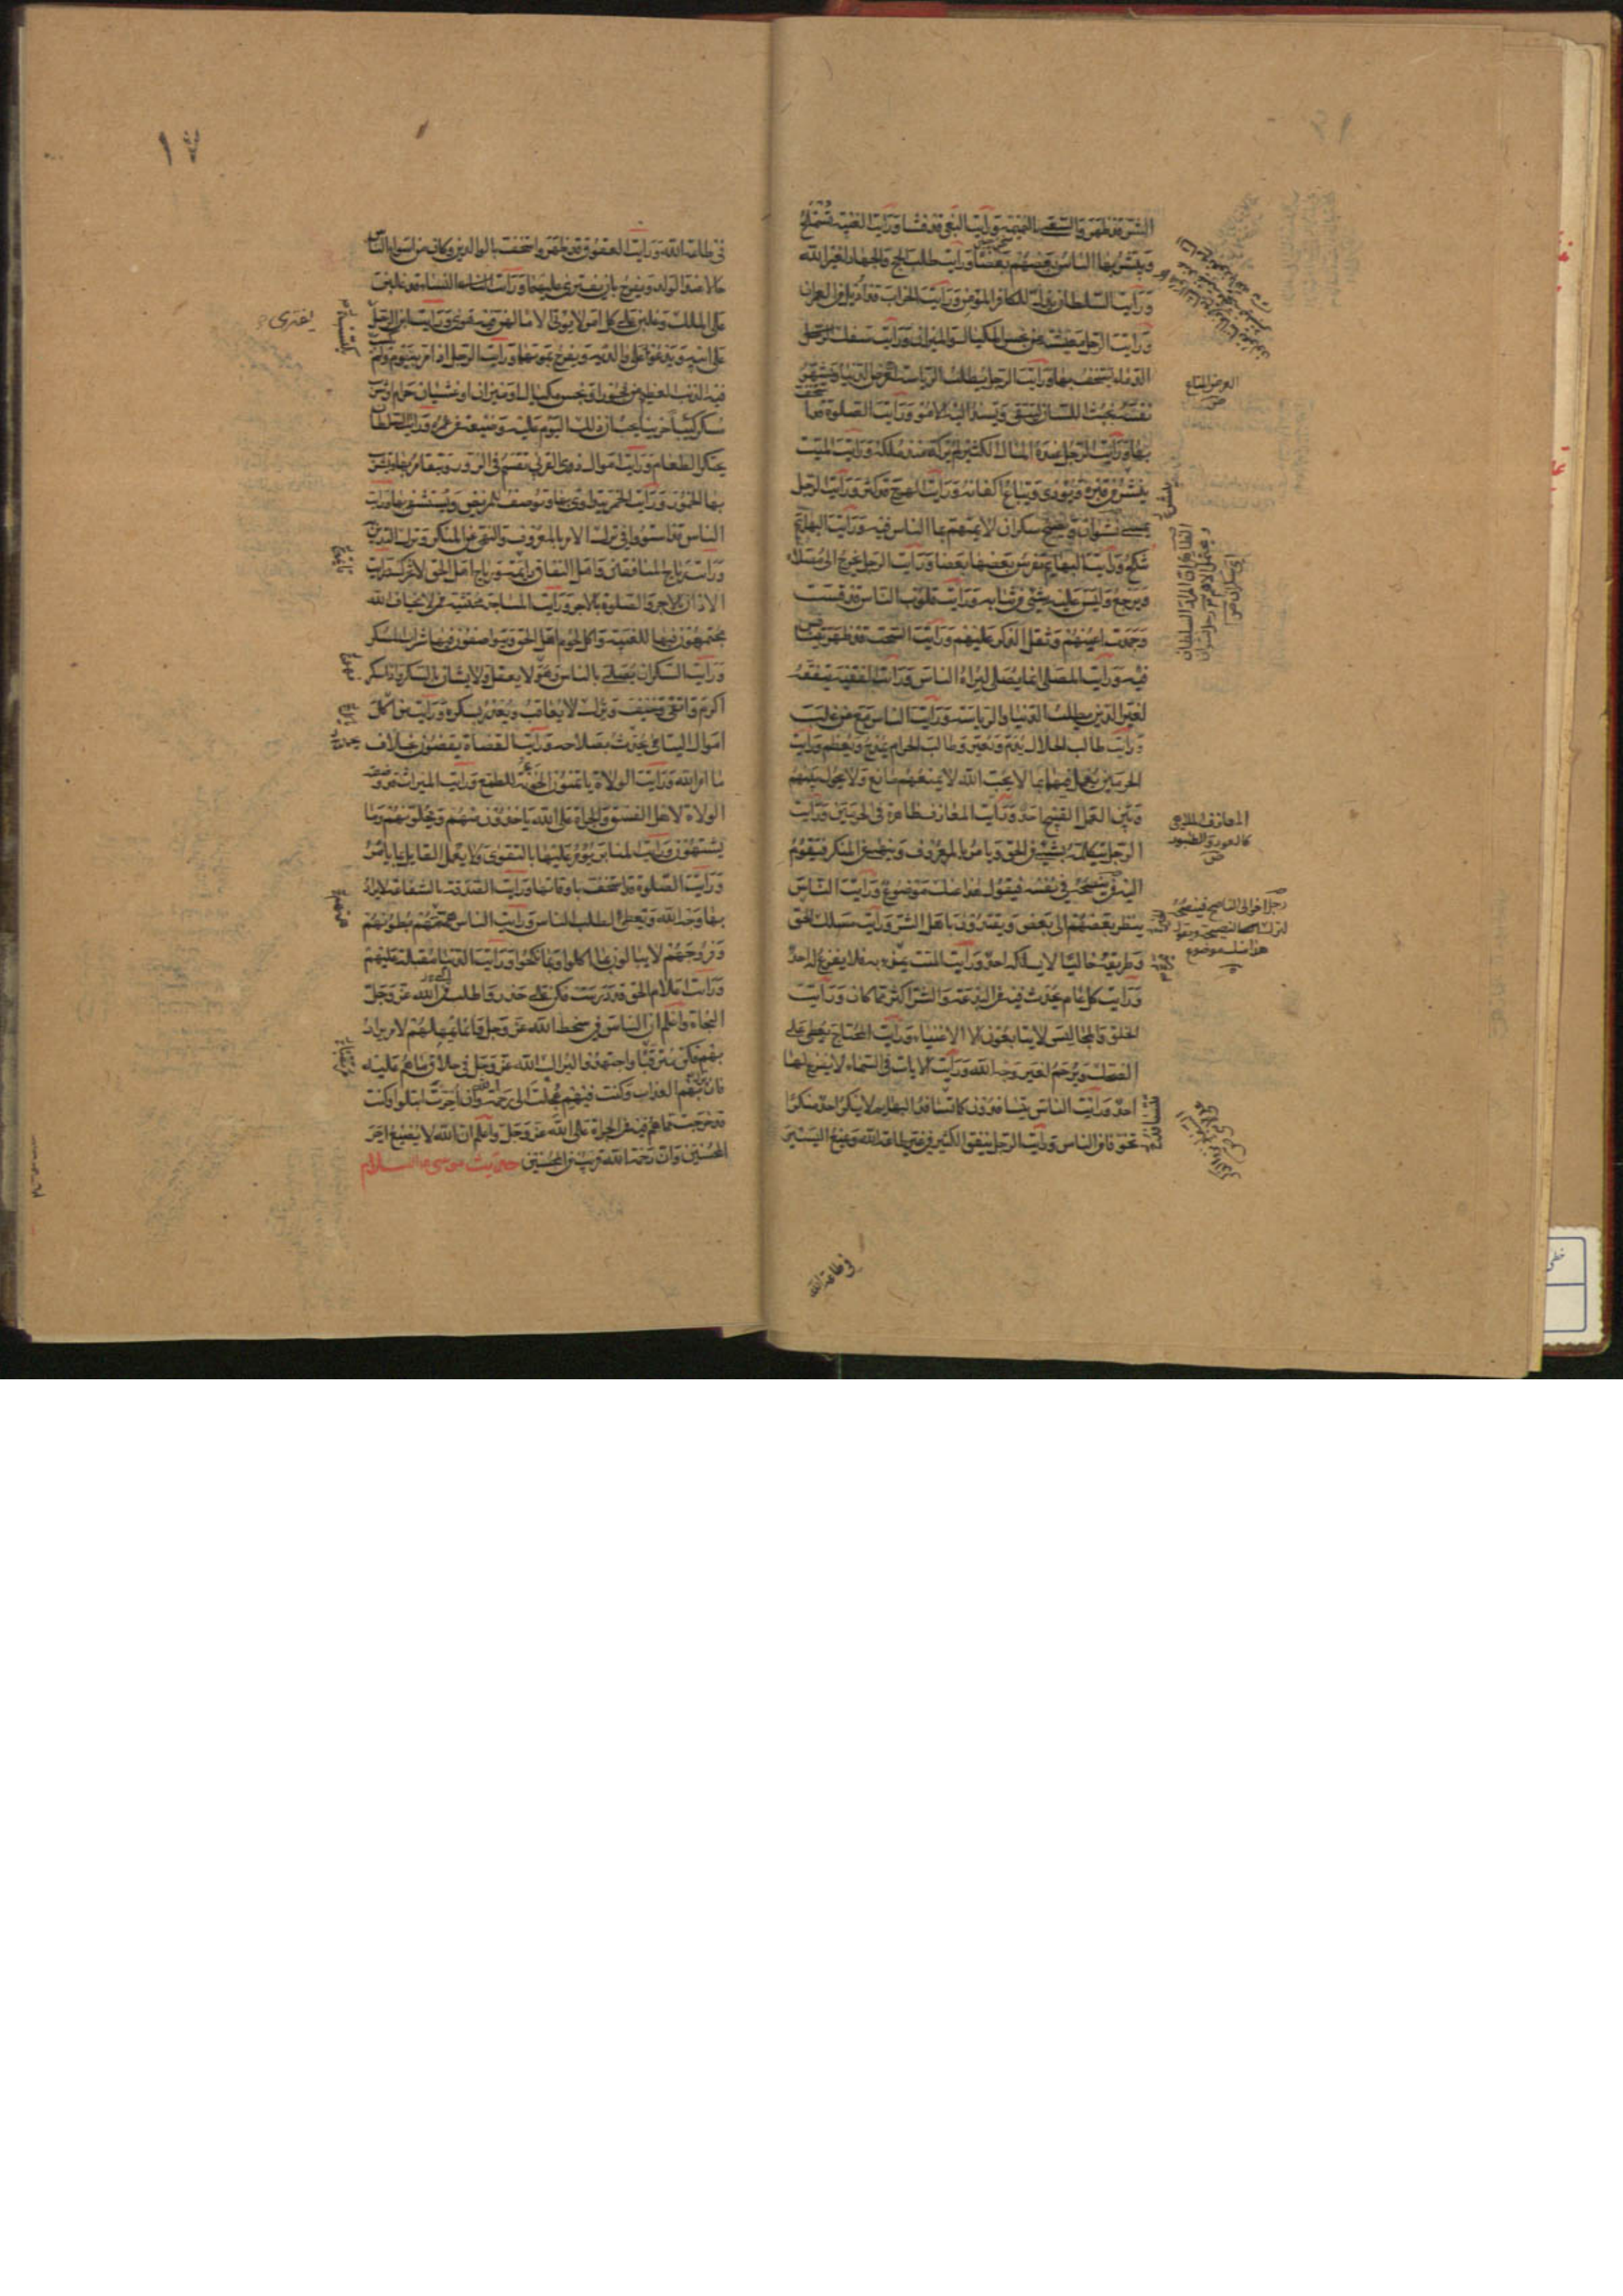 الشر قد ظهر والسعي بالنميمة ورأيت البغي قد فشا ورأيت الغيبة تستملح
ويبشر بها الناس بعضهم بعضا ورأيت طلب الحج والجهاد لغير الله
ورأيت السلطان يذل للكافر المؤمن ورأيت الخراب قد أديل من العمران
ورأيت الرجل معيشته من بخس المكيال والميزان ورأيت سفك
الدماء يستخف بها ورأيت الرجل يطلب الرياسة لعرض الدنيا ويشهر
نفسه بخبث اللسان ليتقى ويسند اليه الامور ورأيت الصلوة قد استخف
بها ورأيت الرجل عنده المال الكثير لم يزكه منذ ملكه ورأيت الميت
ينشر من قبره ويؤذى ويباع اكفانه ورأيت الهرج قد كثر ورأيت الرجل
يمسي نشوان ويصبح سكران لا يهتم بما الناس فيه ورأيت البهائم
تنكح ورأيت البهائم تفرس بعضها بعضا ورأيت الرجل يخرج الى مصلاه
ويرجع وليس عليه شيء من ثيابه ورأيت قلوب الناس قد قست
وجمدت اعينهم وثقل الذكر عليهم ورأيت السحت قد ظهر يتنافس
فيه ورأيت المصلي انما يصلي ليراه الناس ورأيت الفقيه يتفقه
لغير الدين يطلب الدنيا والرياسة ورأيت الناس مع من غلب
ورأيت طالب الحلال يذم ويعير وطالب الحرام يمدح ويعظم ورأيت
الحرمين يعمل فيهما بما لا يحب الله لا يمنعهم مانع ولا يحول بينهم
وبين العمل القبيح احد ورأيت المعازف ظاهرة في الحرمين ورأيت
الرجل يتكلم بشيء من الحق ويامر بالمعروف وينهى عن المنكر فيقوم
اليه من ينصحه في نفسه فيقول هذا عنك موضوع ورأيت الناس
ينظر بعضهم الى بعض ويقتدون باهل الشر ورأيت مسلك الحق
وطريقه خاليا لا يسلكه احد ورأيت الميت يهزء به فلا يفزع له احد
ورأيت كل عام يحدث فيه من البدعة والشر اكثر مما كان ورأيت
الخلق والمجالس لا يتابعون الا الاغنياء ورأيت المحتاج يعطى على
الضحك به ويرحم لغير وجه الله ورأيت الآيات في السماء لا يفزع لها
احد ورأيت الناس يتسافدون كما تتسافد البهائم لا ينكر احد منكرا
تخوفا من الناس ورأيت الرجل ينفق الكثير في غير طاعة الله ويمنع اليسير
العرض المتاع
المعازف الملاهي
كالعود والطنبور
في طاعة الله
١٧
في طاعة الله ورأيت العقوق قد ظهر واستخف بالوالدين وكانا من اسوء الناس
حالا عند الولد ويفرح بان يفترى عليهما ورأيت النساء قد غلبن
على الملك وغلبن على كل امر لا يؤتى الا ما لهن فيه هوى ورأيت ابن الرجل
على ابيه ويدعو على والديه ويفرح بموتهما ورأيت الرجل اذا مر به يوم ولم
فيه الذنب العظيم من فجور او بخس مكيال او ميزان او غشيان حرام او شرب
مسكر كئيبا حزينا يحسب ان ذلك اليوم عليه وضيعة من عمره ورأيت السلطان
يحتكر الطعام ورأيت اموال ذوي القربى تقسم في الزور ويتقامر بها ويشرب
بها الخمور ورأيت الخمر يتداوى بها وتوصف للمريض ويستشفى بها ورأيت
الناس قد استووا في ترك الامر بالمعروف والنهي عن المنكر وترك التدين
ورأيت رياح المنافقين واهل النفاق ورياح اهل الحق لا تحرك ورأيت
الاذان بالاجر والصلوة بالاجر ورأيت المساجد محتشية ممن لا يخاف الله
يجتمعون فيها للغيبة واكل لحوم اهل الحق ويتواصفون فيها شراب المسكر
ورأيت السكران يصلي بالناس وهو لا يعقل ولا يشان بالسكر واذا سكر
اكرم واتقي وخيف وترك لا يعاقب ويعذر بسكره ورأيت من اكل
اموال اليتامى يحدث بصلاحه ورأيت القضاة يقضون بخلاف
ما امر الله ورأيت الولاة ياتمنون الخونة للطمع ورأيت الميراث قد وضعته
الولاة لاهل الفسق والجرأة على الله ياخذون منهم ويخلونهم وما
يشتهون ورأيت المنابر يؤمر عليها بالتقوى ولا يعمل القايل بما يامر
ورأيت الصلوة قد استخف باوقاتها ورأيت الصدقة بالشفاعة لا يراد
بها وجه الله ويعطى لطلب الناس ورأيت الناس همهم بطونهم
وفروجهم لا يبالون بما اكلوا وما نكحوا ورأيت الدنيا مقبلة عليهم
ورأيت اعلام الحق قد درست فكن على حذر واطلب الى الله عز وجل
النجاة واعلم ان الناس في سخط الله عز وجل وانما يمهلهم لامر يراد
بهم فكن مترقبا واجتهد ليراك الله عز وجل في خلاف ما هم عليه
فان نزل بهم العذاب وكنت فيهم عجلت الى رحمة الله وان اخرت ابتلوا وكنت
قد خرجت مما هم فيه من الجرأة على الله عز وجل واعلم ان الله لا يضيع اجر
المحسنين وان رحمة الله قريب من المحسنين حديث موسى عليه السلام